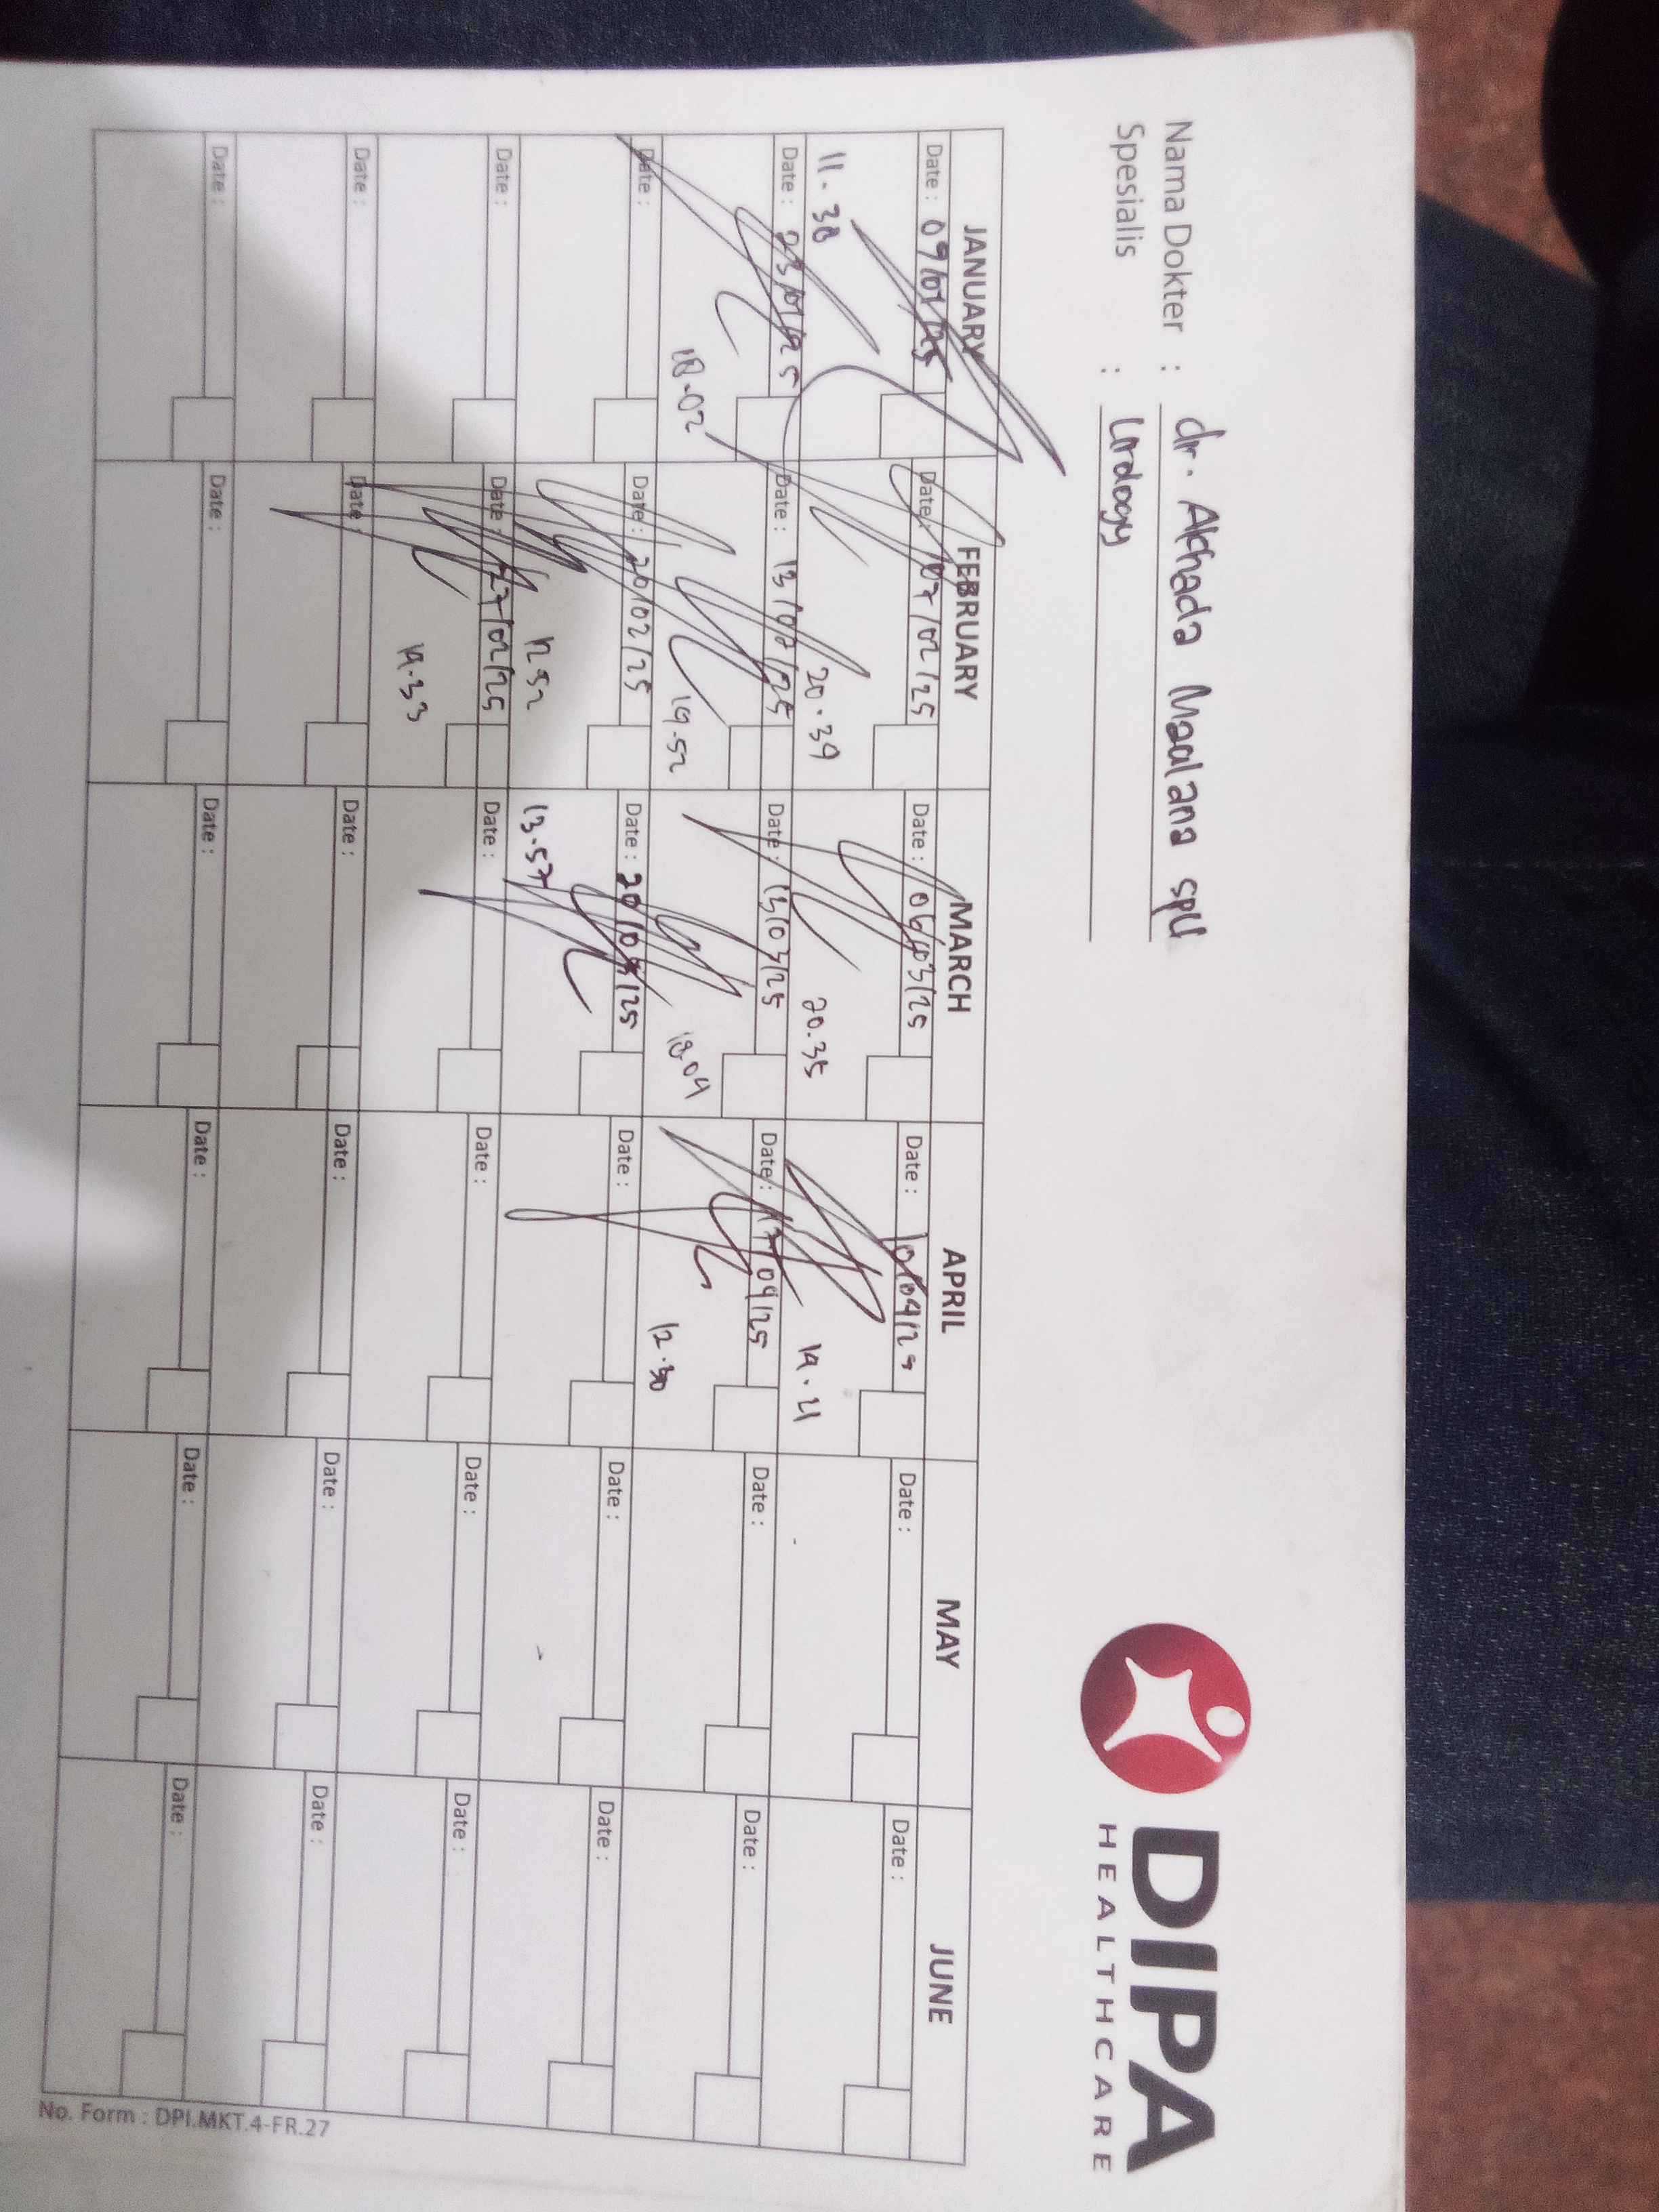 Nama Dokter : dr. Akhada Maulana SpU
Spesialis : Urology
DIPA
HEALTHCARE
JANUARY FEBRUARY MARCH APRIL MAY JUNE
Date : 09/01/25 Date : 07/02/25 Date : 06/03/25 Date : 10/04/25 Date : Date :
11.30 20.39 20.35 19.21
Date : 23/01/25 Date : 13/02/25 Date : 13/03/25 Date : 17/04/25 Date : Date :
18.02 19.52 18.04 12.30
Date : Date : 20/02/25 Date : 20/03/25 Date : Date : Date :
12.52 13.57
Date : Date : 27/02/25 Date : Date : Date : Date :
19.33
Date : Date : Date : Date : Date : Date :
Date : Date : Date : Date : Date : Date :
No. Form : DPI.MKT.4-FR.27